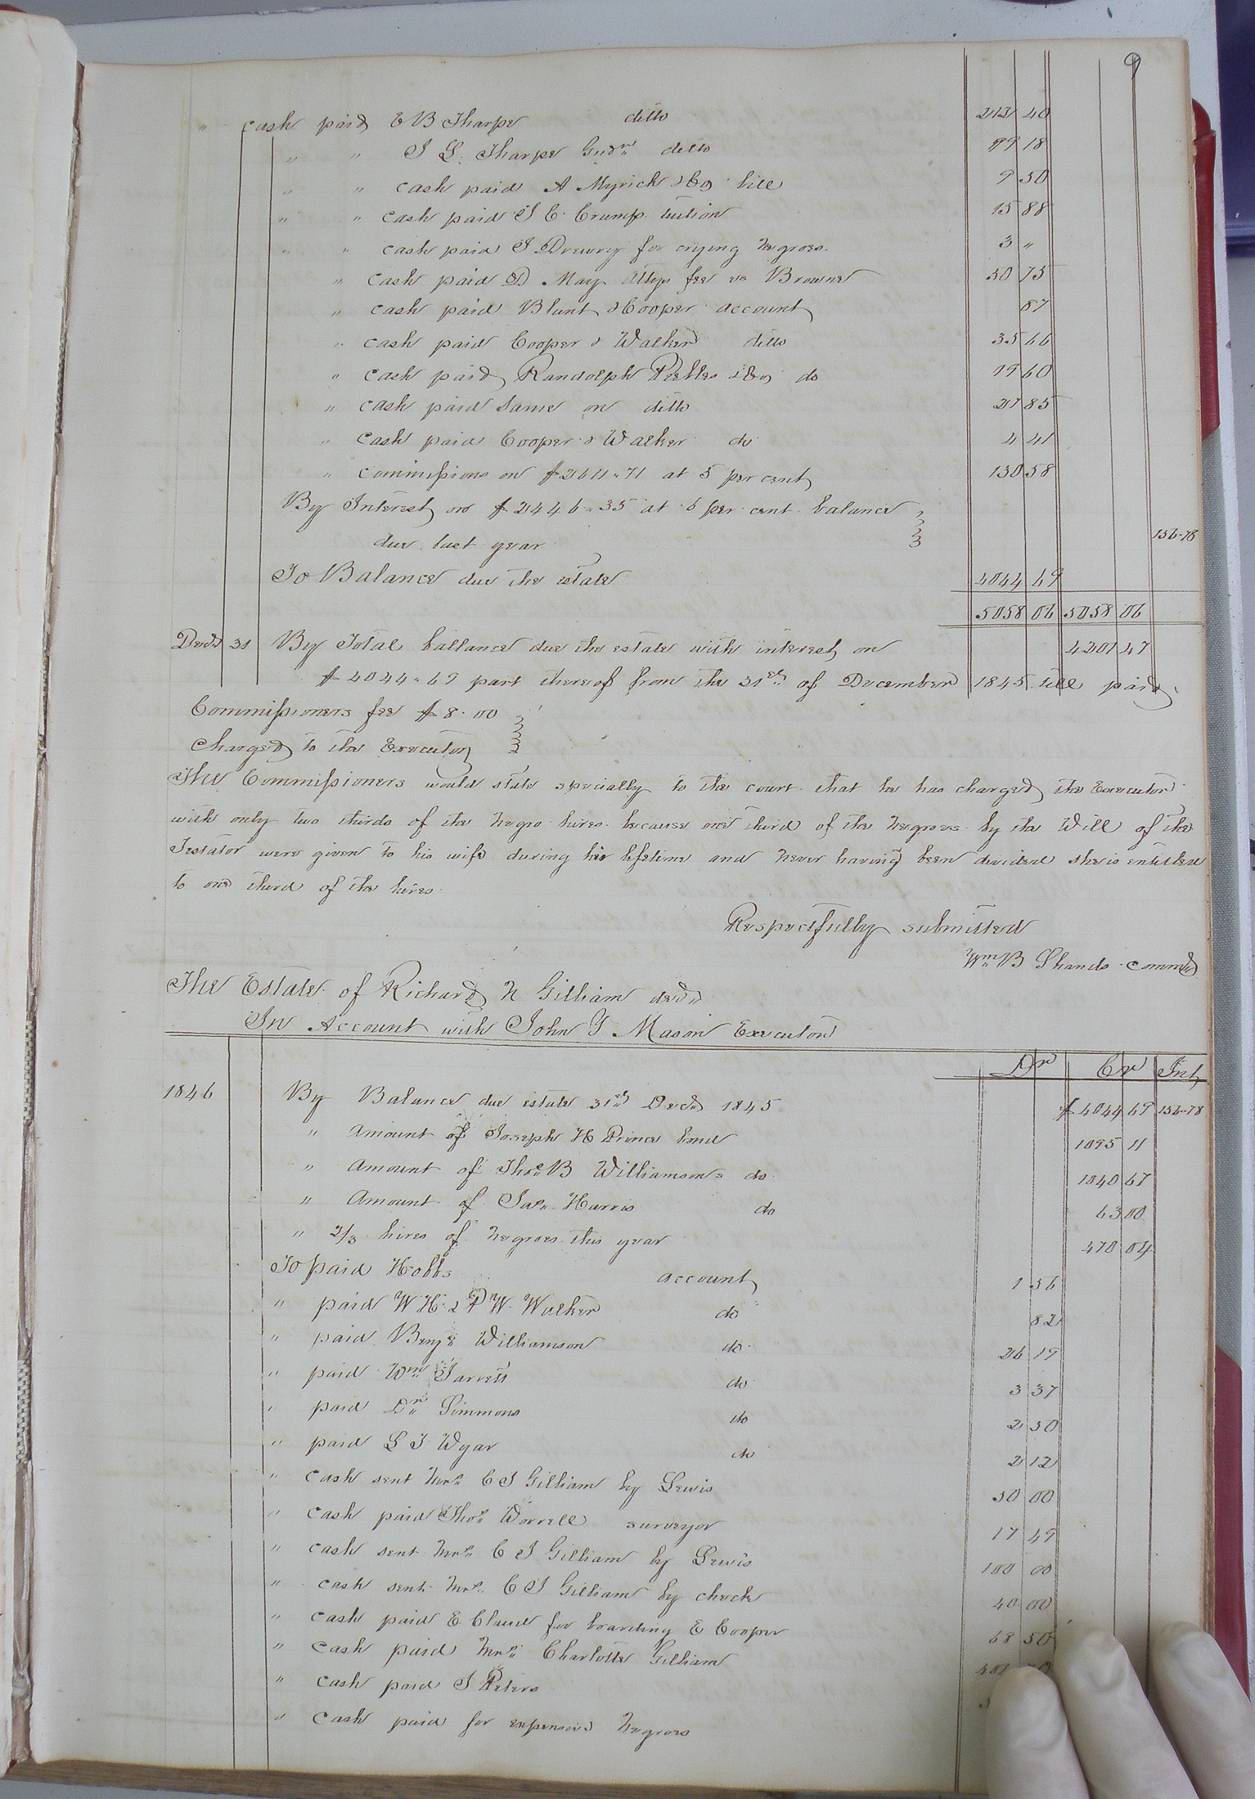 9
" cash paid E B Tharpe ditto 40
" " J L Tharpe Gudn ditto 99 18
" " cash paid A Myrick & Co bill 9 50
" " cash paid J C Crump tution 15 88
" " cash paid J Drewry for crying negroes 3 "
" cash paid D May Attys fee vs Browne 50 75
" cash paid Blunt & Cooper account 87
" cash paid Cooper & Walker ditto 35 66
" cash paid Randolph Peebles & Co do 19 60
" cash paid same on ditto 85
" cash paid Cooper & Walker do 4 41
" commissions on $2611.71 at 5 per cent 130 58
By Interest on $2446.35 at 6 per cent balance
due last year 156-78
To Balance due the estate 4044 69
5058 06 5058 06
Decr 31 By Total ballance due the estate with interest on 4201 47
$4044.69 part thereof from the 31st of December 1845 till paid
Commissioners fee $8.00
Charged to the Executor
The Commissioners would state specially to the court that he has charged the Executor
with only two thirds of the negro hires because one third of the negroes by the Will of the
Testator were given to his wife during her lifetime and never having been devided she is entitled
to one third of the hires
Respectfully submitted
Wm B Shands commr
The Estate of Richard H Gilliam decd
In Account with John Y Mason Executor
Dr Cr Int
1846 By Balance due estate 31st Decr 1845 $4044 69 156-78
" Amount of Joseph H Prince bond 1095 11
" Amount of Thos B Williamsons do 1040 67
" Amount of Jas Harris do 63 00
" 2/3 hires of negroes this year 470 04
To paid Hobbs account 1 56
" paid W H & P W Walker do 82
" paid Benj Williamson do 26 19
" paid Wm Jarrett do 3 37
" paid Dr Simmons do 2 50
" paid L J Wyar do 2 12
" cash sent Mrs C S Gilliam by Lewis 50 00
" cash paid Thos Worrell surveyor 17 49
" cash sent Mrs C S Gilliam by Lewis 100 00
" cash sent Mrs C S Gilliam by check 40 00
" cash paid E Claud for boarding E Cooper 68 50
" cash paid Mrs Charlotte Gilliam
" cash paid J Peters
" cash paid for expenses negroes